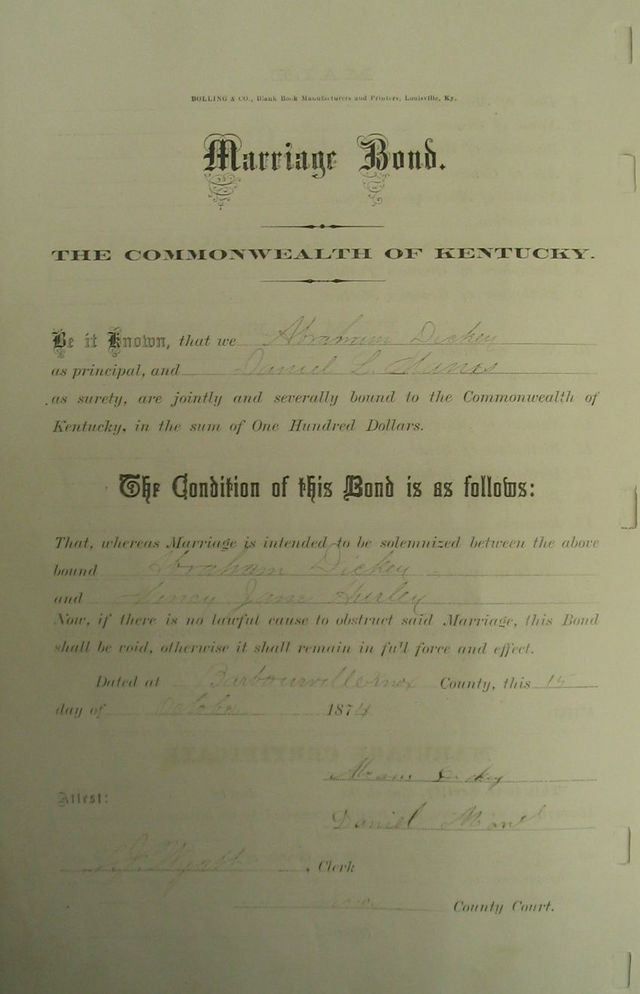 BOLLING & CO., Blank Book Manufacturers and Printers, Louisville, Ky.
Marriage Bond.
THE COMMONWEALTH OF KENTUCKY.
Be it Known, that we Abraham Dickey
as principal, and Daniel L.
as surety, are jointly and severally bound to the Commonwealth of
Kentucky, in the sum of One Hundred Dollars.
The Condition of this Bond is as follows:
That, whereas Marriage is intended to be solemnized between the above
bound Abraham Dickey
and Nancy Jane Hurley
Now, if there is no lawful cause to obstruct said Marriage, this Bond
shall be void, otherwise it shall remain in full force and effect.
Dated at Barbourville Knox County, this 15
day of October 1874
Dickey
Attest:
Daniel
Wyatt, Clerk
County Court.